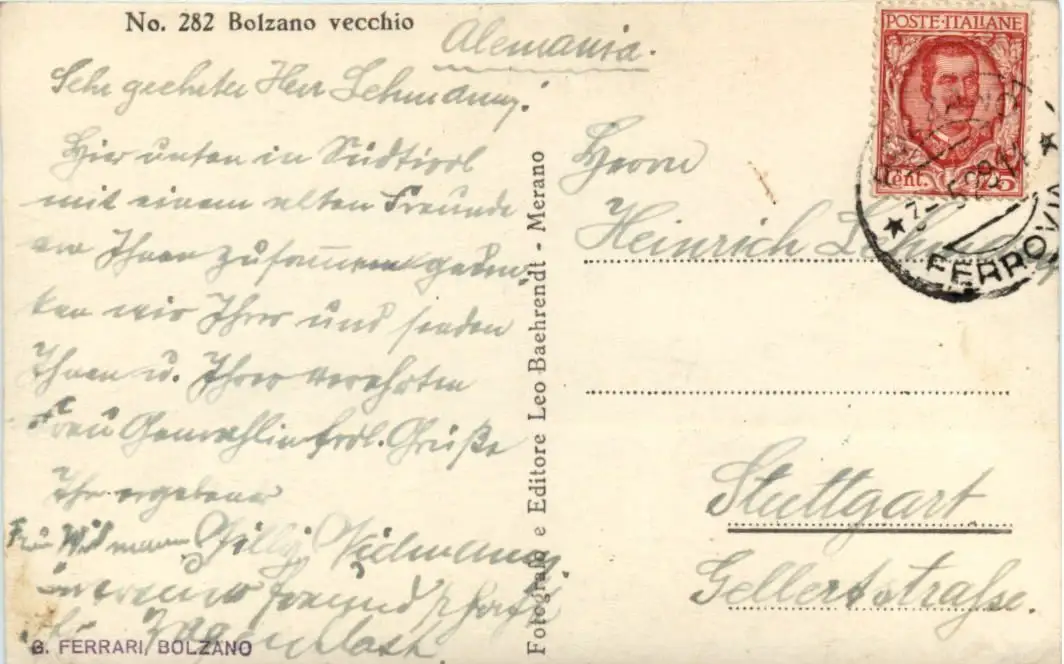 No. 282 Bolzano vecchio
Alemania.
Sehr geehrter Herr Lehmann!
Hier unten in Südtirol
mit einem alten Freunde
von Ihnen zusammen geden-
ken wir Ihrer und senden
Ihnen u. Ihrer verehrten
Frau Gemahlin frdl. Grüße
Ihr ergebener
Willy Widmann
Freundschaft
G. FERRARI, BOLZANO
Fotografo e Editore Leo Baehrendt - Merano
POSTE·ITALIANE
Cent. 75
FERROVIA
Herrn
Heinrich
Stuttgart
Gellertstraße.